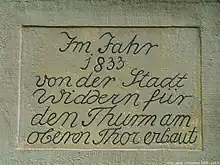 Im Jahr
1833
von der Stadt
Widdern für
den Thurm am
obern Thor erbaut